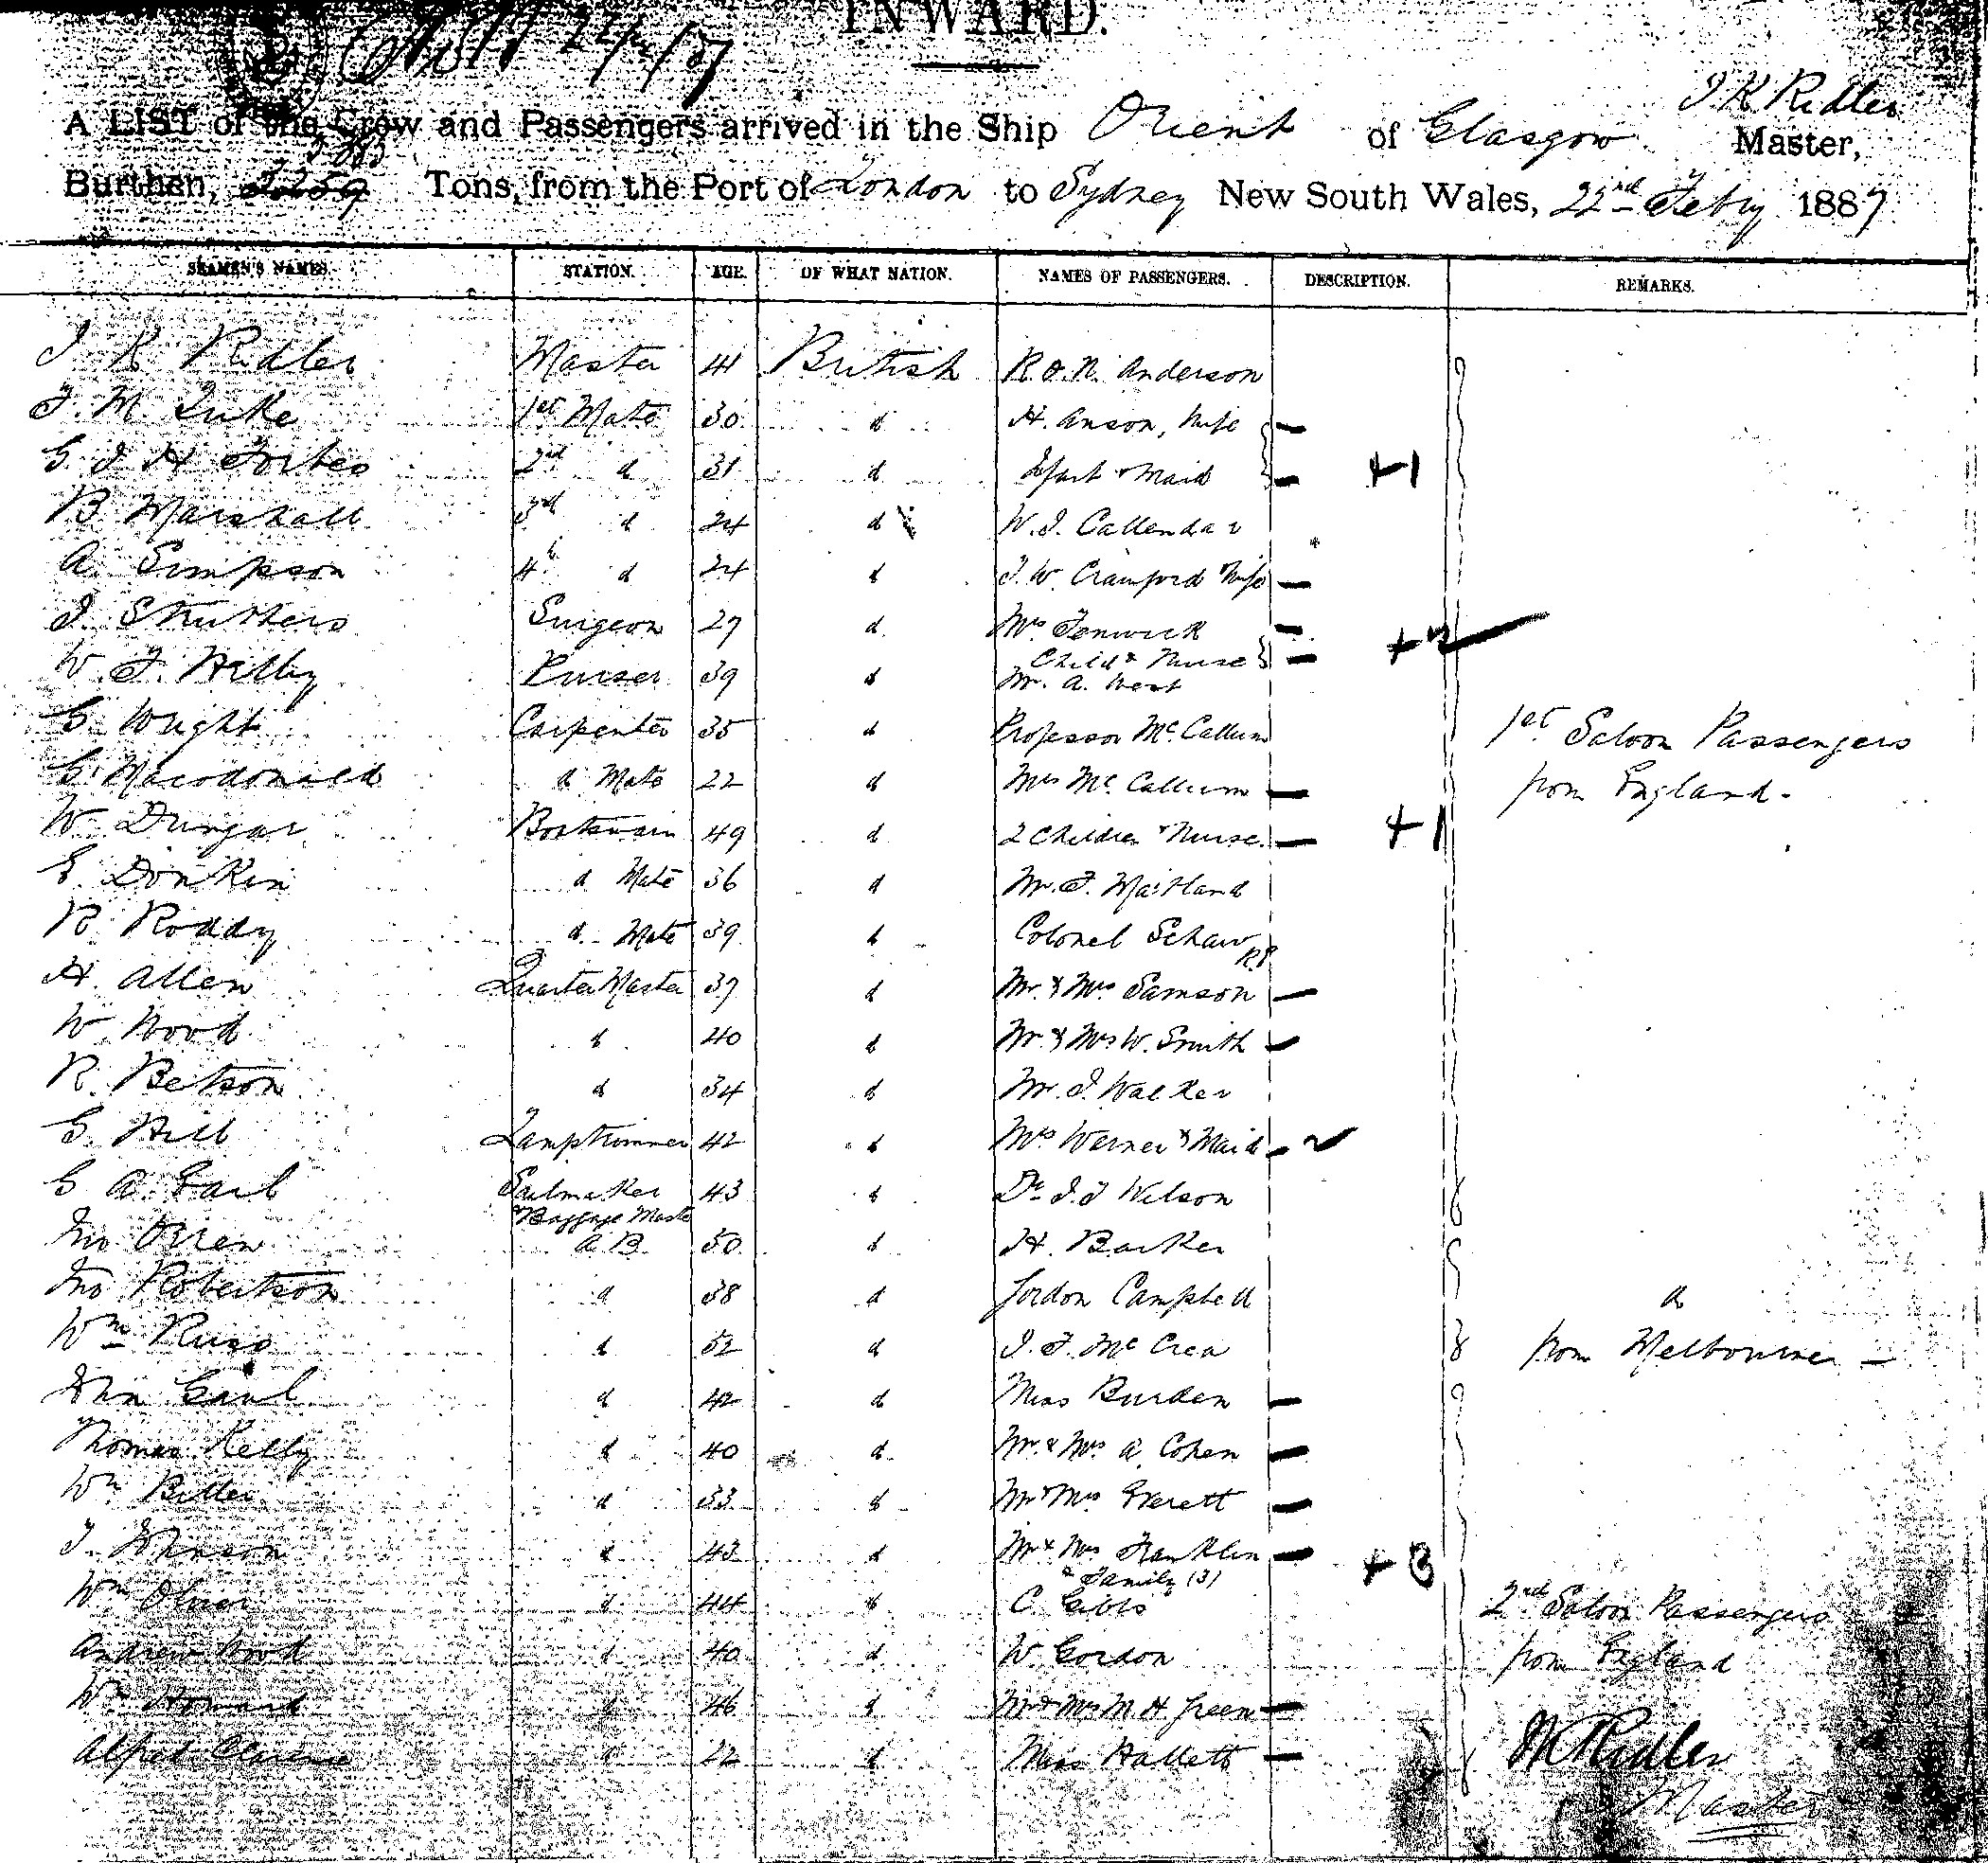 INWARD.
J. K. Ridler
A LIST of the Crew and Passengers arrived in the Ship Orient of Glasgow Master,
Burthen, Tons, from the Port of London to Sydney New South Wales, 22nd Febry 1887
SEAMEN'S NAMES. STATION. AGE. OF WHAT NATION. NAMES OF PASSENGERS. DESCRIPTION. REMARKS.
J K Ridler Master 41 British R. O. N. Anderson
F. M. Luke 1st Mate 30 d H. Anson, Wife
G J H Forbes 2nd d 31 d Infant & Maid +1
B Marshall 3rd d 24 d W. J. Callendar
A. Simpson 4th d 24 d J. W. Crawford & Wife
J. Struthers Surgeon 27 d Mrs Fenwick
Child & Nurse
W. F. Purser 39 d Mr. A. West
G. Wright Carpenter 35 d Professor Mc.Callum 1st Saloon Passengers
G. Macdonald d Mate 22 d Mrs Mc Callum from England.
W Boatswain 49 d 2 Children & Nurse. +1
G. Donkin d Mate 36 d Mr. F. Maitland
R. Roddy d Mate 39 d Colonel Schaw
H. Allen Quarter Master 37 d Mr. & Mrs Samson
W Wood d 40 d Mr. & Mrs W. Smith
R. Betson d 34 d Mr. J. Walker
G. Hill Lamptrimmer 42 d Mrs Werner & Maid
G A. Earl Sailmaker 43 d Dr J. J Wilson
Baggage Master
Jno A B 50 d H. Barker
Jno Robertson d 38 d Gordon Campbell d
Wm Russ d 52 d J. F. Mc Crea from Melbourne
John d 42 d Miss Burden
Thomas Kelly d 40 d Mr. & Mrs A. Cohen
Wm d 33 d Mr & Mrs Everett
J. Johnson d 43 d Mr & Mrs Franklin +3
& Family (3)
Wm Oliver d 44 d C. Gibbs 2nd Saloon Passengers
Andrew Wood d 40 d W Gordon from England
Wm Howard d 46 d Mr & Mrs M. H. Green
Alfred Clarence d 22 d Miss Hallett JKRidler
Master